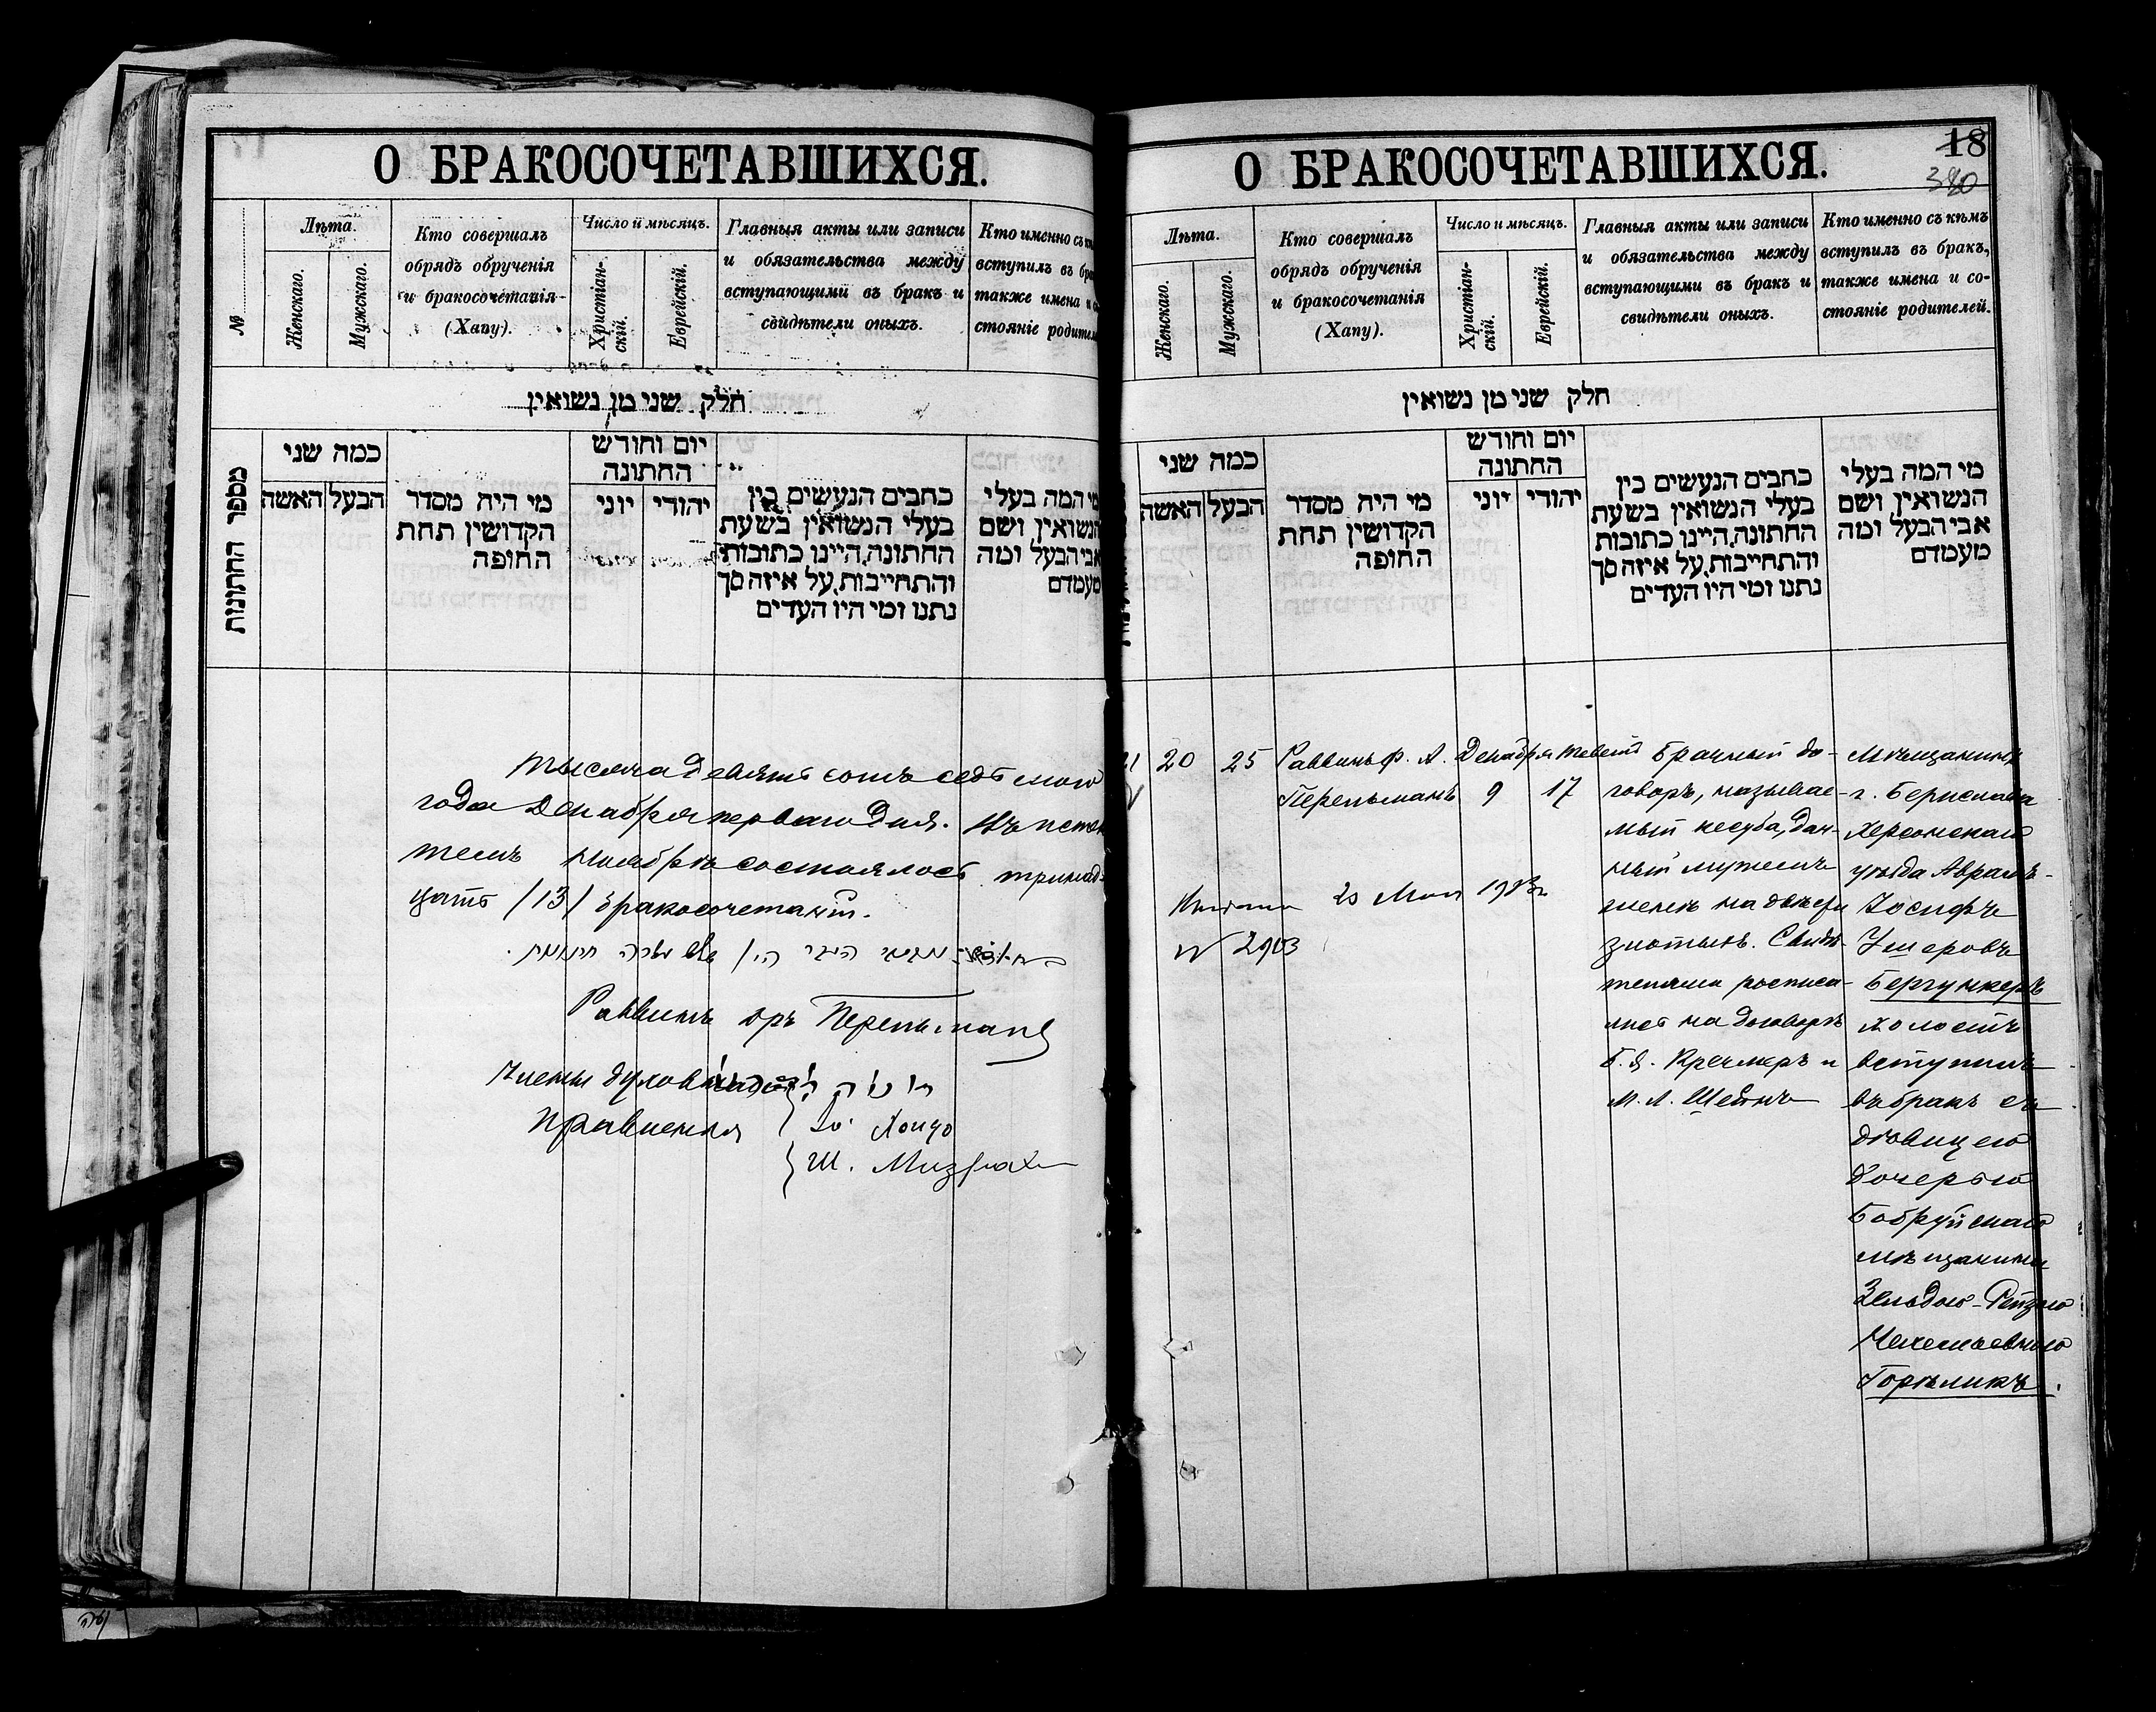 О БРАКОСОЧЕТАВШИХСЯ.
№
Лѣта.
Женскаго.
Мужскаго.
Кто совершалъ
обрядъ обрученія
и бракосочетанія
(Хапу).
Число и мѣсяцъ.
Христіан-
скій.
Еврейскій.
Главныя акты или записи
и обязательства между
вступающими въ бракъ и
свидѣтели оныхъ.
Кто именно съ
вступилъ въ
также имена и
стояніе
חלק שני מן נשואין
מספר החתונות
כמה שני
האשה
הבעל
מי היה מסדר
הקדושין תחת
החופה
יום וחודש
החתונה
יוני
יהודי
כתבים הנעשים בין
בעלי הנשואין בשעת
החתונה, היינו כתובות
והתחייבות, על איזה סך
נתנו ומי היו העדים
מי המה בעלי
הנשואין ושם
אבי הבעל ומה
מעמדם
Тысяча девять сотъ седьмого
года Декабря перваго дня. Въ
Ноябрѣ состоялось тринад-
цать /13/ бракосочетаній.
Раввинъ Перельманъ
Члены духовнаго
Правленія
Ш. Мизрахи
О БРАКОСОЧЕТАВШИХСЯ.
18
380
Лѣта.
Женскаго.
Мужскаго.
Кто совершалъ
обрядъ обрученія
и бракосочетанія
(Хапу).
Число и мѣсяцъ.
Христіан-
скій.
Еврейскій.
Главныя акты или записи
и обязательства между
вступающими въ бракъ и
свидѣтели оныхъ.
Кто именно съ кѣмъ
вступилъ въ бракъ,
также имена и со-
стояніе родителей.
חלק שני מן נשואין
כמה שני
האשה
הבעל
מי היה מסדר
הקדושין תחת
החופה
יום וחודש
החתונה
יוני
יהודי
כתבים הנעשים בין
בעלי הנשואין בשעת
החתונה, היינו כתובות
והתחייבות, על איזה סך
נתנו ומי היו העדים
מי המה בעלי
הנשואין ושם
אבי הבעל ומה
מעמדם
20
25
Раввинъ Ф. А.
Перельманъ
Декабря
9
Тевета
17
Брачный до-
говоръ, называе-
мый кесуба, дан-
ный мужемъ
женѣ на двѣсти
злотыхъ. Свидѣ-
телями росписа-
лись на договорѣ
Б. Я. Кремеръ и
М. Л. Шейнъ
Мѣщанинъ
г. Берислава
Херсонскаго
уѣзда Аврамъ-
Іосифъ
Ушеровъ
Бергункеръ
холостъ
вступилъ
въ бракъ съ
дѣвицею
дочерью
Бобруйскаго
мѣщанина
Зельдою-Рейзою
Горѣликъ.
20 Мая
№ 2903